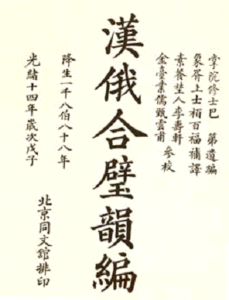 掌院修士巴 第遺編
象胥上士柏百福補譯
素養堂人李壽軒
金臺業儒甄雲甫 參校
漢俄合璧韻編
降生一千八伯八十八年
光緒十四年歲次戊子
北京同文館排印